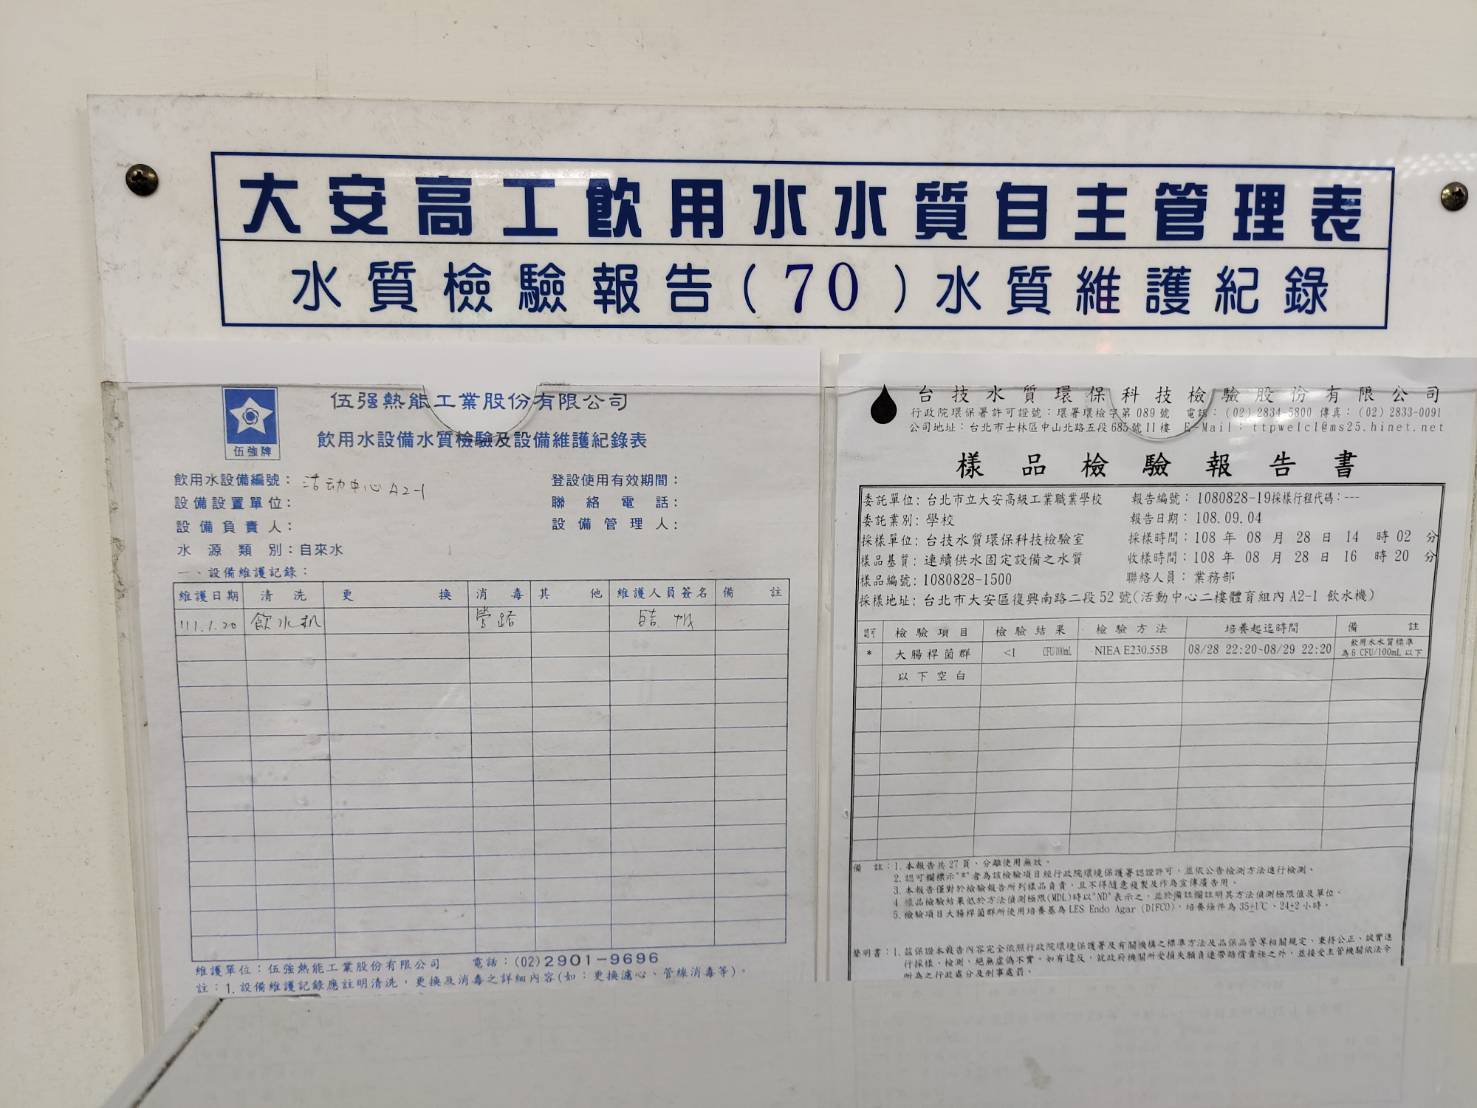 大安高工飲用水水質自主管理表
水質檢驗報告(70)水質維護紀錄
伍強牌
伍强熱能工業股份有限公司
飲用水設備水質檢驗及設備維護紀錄表
飲用水設備編號：活动中心 A2-1
登設使用有效期間：
設備設置單位：
聯絡電話：
設備負責人：
設備管理人：
水源類別：自來水
一、設備維護記錄：
維護日期 清洗 更換 消毒 其他 維護人員簽名 備註
111.1.20 飲水机 管路
維護單位：伍強熱能工業股份有限公司 電話：(02)2901-9696
註：1.設備維護記錄應註明清洗，更換及消毒之詳細內容(如：更換濾心、管線消毒等)，
台技水質環保科技檢驗股份有限公司
行政院環保署許可證號：環署環檢字第089號 電話：(02)2834-5800 傳真：(02)2833-0091
公司地址：台北市士林區中山北路五段685號11樓 E-Mail：ttpwelcl@ms25.hinet.net
樣品檢驗報告書
委託單位：台北市立大安高級工業職業學校 報告編號：1080828-19採樣行程代碼：---
委託業別：學校 報告日期：108.09.04
採樣單位：台技水質環保科技檢驗室 採樣時間：108 年 08 月 28 日 14 時 02 分
樣品基質：連續供水固定設備之水質 收樣時間：108 年 08 月 28 日 16 時 20 分
樣品編號：1080828-1500 聯絡人員：業務部
採樣地址：台北市大安區復興南路二段52號(活動中心二樓體育組內A2-1 飲水機)
認可 檢驗項目 檢驗結果 檢驗方法 培養起迄時間 備註
* 大腸桿菌群 <1 CFU/100mL NIEA E230.55B 08/28 22:20~08/29 22:20 飲用水水質標準為6 CFU/100mL以下
以下空白
備註：1.本報告共27頁，分離使用無效。
2.認可欄標示"*"者為該檢驗項目經行政院環境保護署認證許可，並依公告檢測方法進行檢測。
3.本報告僅對於檢驗報告所列樣品負責，且不得隨意複製及作為宣傳廣告用。
4.樣品檢驗結果低於方法偵測極限(MDL)時以"ND"表示之，並於備註欄註明其方法偵測極限值及單位。
5.檢驗項目大腸桿菌群所使用培養基為LES Endo Agar (DIFCO)，培養條件為35±1℃、24±2小時。
聲明書：1.茲保證本報告內容完全依照行政院環境保護署及有關機構之標準方法及品保品管等相關規定，秉持公正、誠實進
行採樣、檢測，絕無虛偽不實，如有違反，就政府機關所受損失願負連帶賠償責任之外，並接受主管機關依法令
所為之行政處分及刑事處罰。